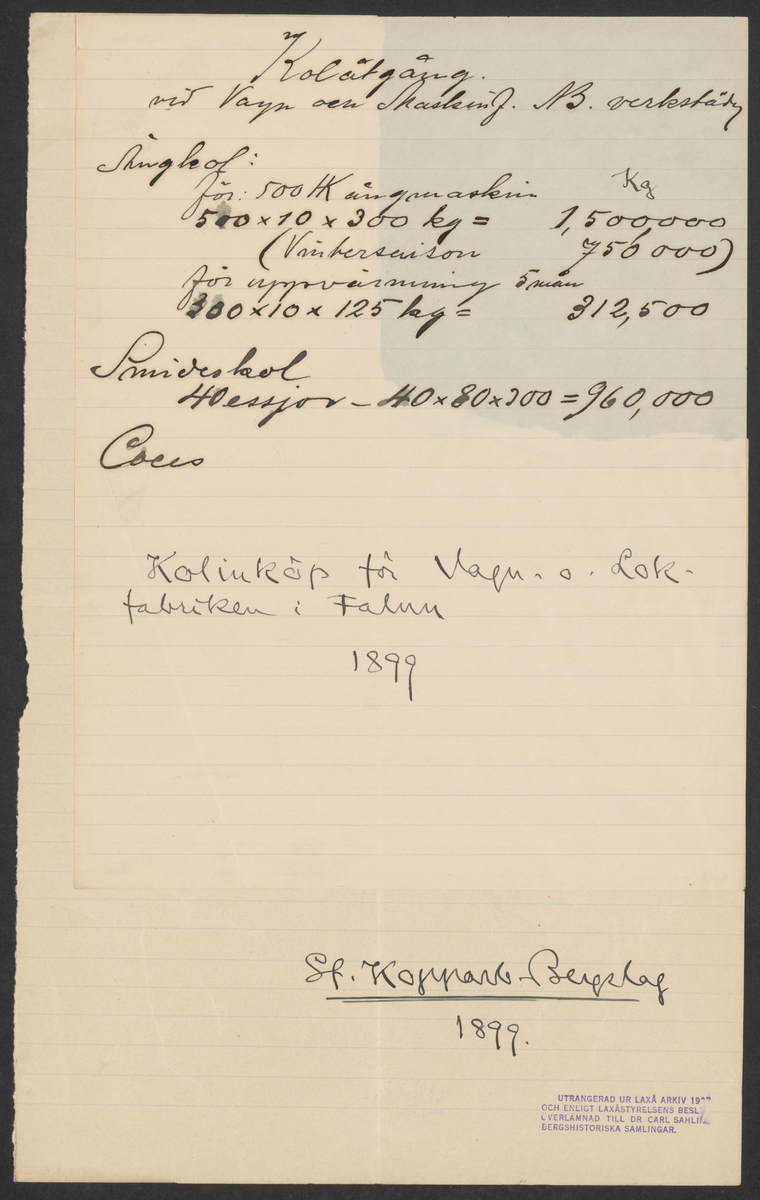 Kolåtgång.
vid Vagn och Maskinf. NB. verkstäder
Ångkol:
Kg
för: 500 HK ångmaskin
500 x 10 x 300 kg = 1,500000
(Vintersaison 750 000)
för uppvärmning 5 mån
300 x 10 x 125 kg = 312,500
Smideskol
40 essjor - 40 x 80 x 300 = 960,000
Coces
Kolinköp för Vagn- o. Lok-
fabriken i Falun
1899
St. Kopparb-Bergslag
1899.
UTRANGERAD UR LAXÅ ARKIV 19
OCH ENLIGT LAXÅSTYRELSENS BESL
ÖVERLÄMNAD TILL DR CARL SAHLIN
BERGSHISTORISKA SAMLINGAR.